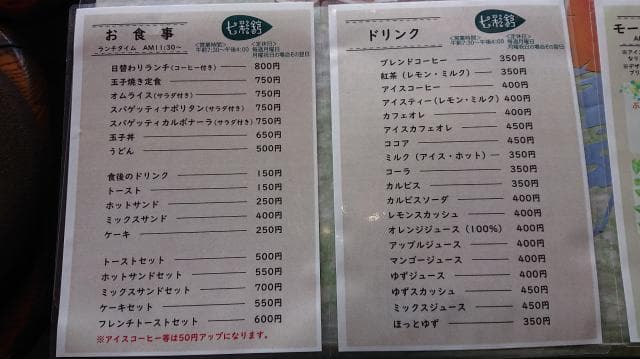 お食事
ランチタイム AM11:30〜
七彩館
<営業時間>
午前7:30〜午後4:00
<定休日>
毎週月曜日
月曜祝日の場合その翌日
日替わりランチ(コーヒー付き) 800円
玉子焼き定食 750円
オムライス(サラダ付き) 750円
スパゲッティナポリタン(サラダ付き) 750円
スパゲッティカルボナーラ(サラダ付き) 750円
玉子丼 650円
うどん 500円
食後のドリンク 150円
トースト 150円
ホットサンド 250円
ミックスサンド 400円
ケーキ 250円
トーストセット 500円
ホットサンドセット 550円
ミックスサンドセット 700円
ケーキセット 550円
フレンチトーストセット 600円
※アイスコーヒー等は50円アップになります。
ドリンク
七彩館
<営業時間>
午前7:30〜午後4:00
<定休日>
毎週月曜日
月曜祝日の場合その翌日
ブレンドコーヒー 350円
紅茶(レモン・ミルク) 350円
アイスコーヒー 400円
アイスティー(レモン・ミルク) 400円
カフェオレ 400円
アイスカフェオレ 450円
ココア 450円
ミルク(アイス・ホット) 350円
コーラ 350円
カルピス 350円
カルピスソーダ 400円
レモンスカッシュ 400円
オレンジジュース(100%) 400円
アップルジュース 400円
マンゴージュース 400円
ゆずジュース 400円
ゆずスカッシュ 450円
ミックスジュース 450円
ほっとゆず 350円
モー